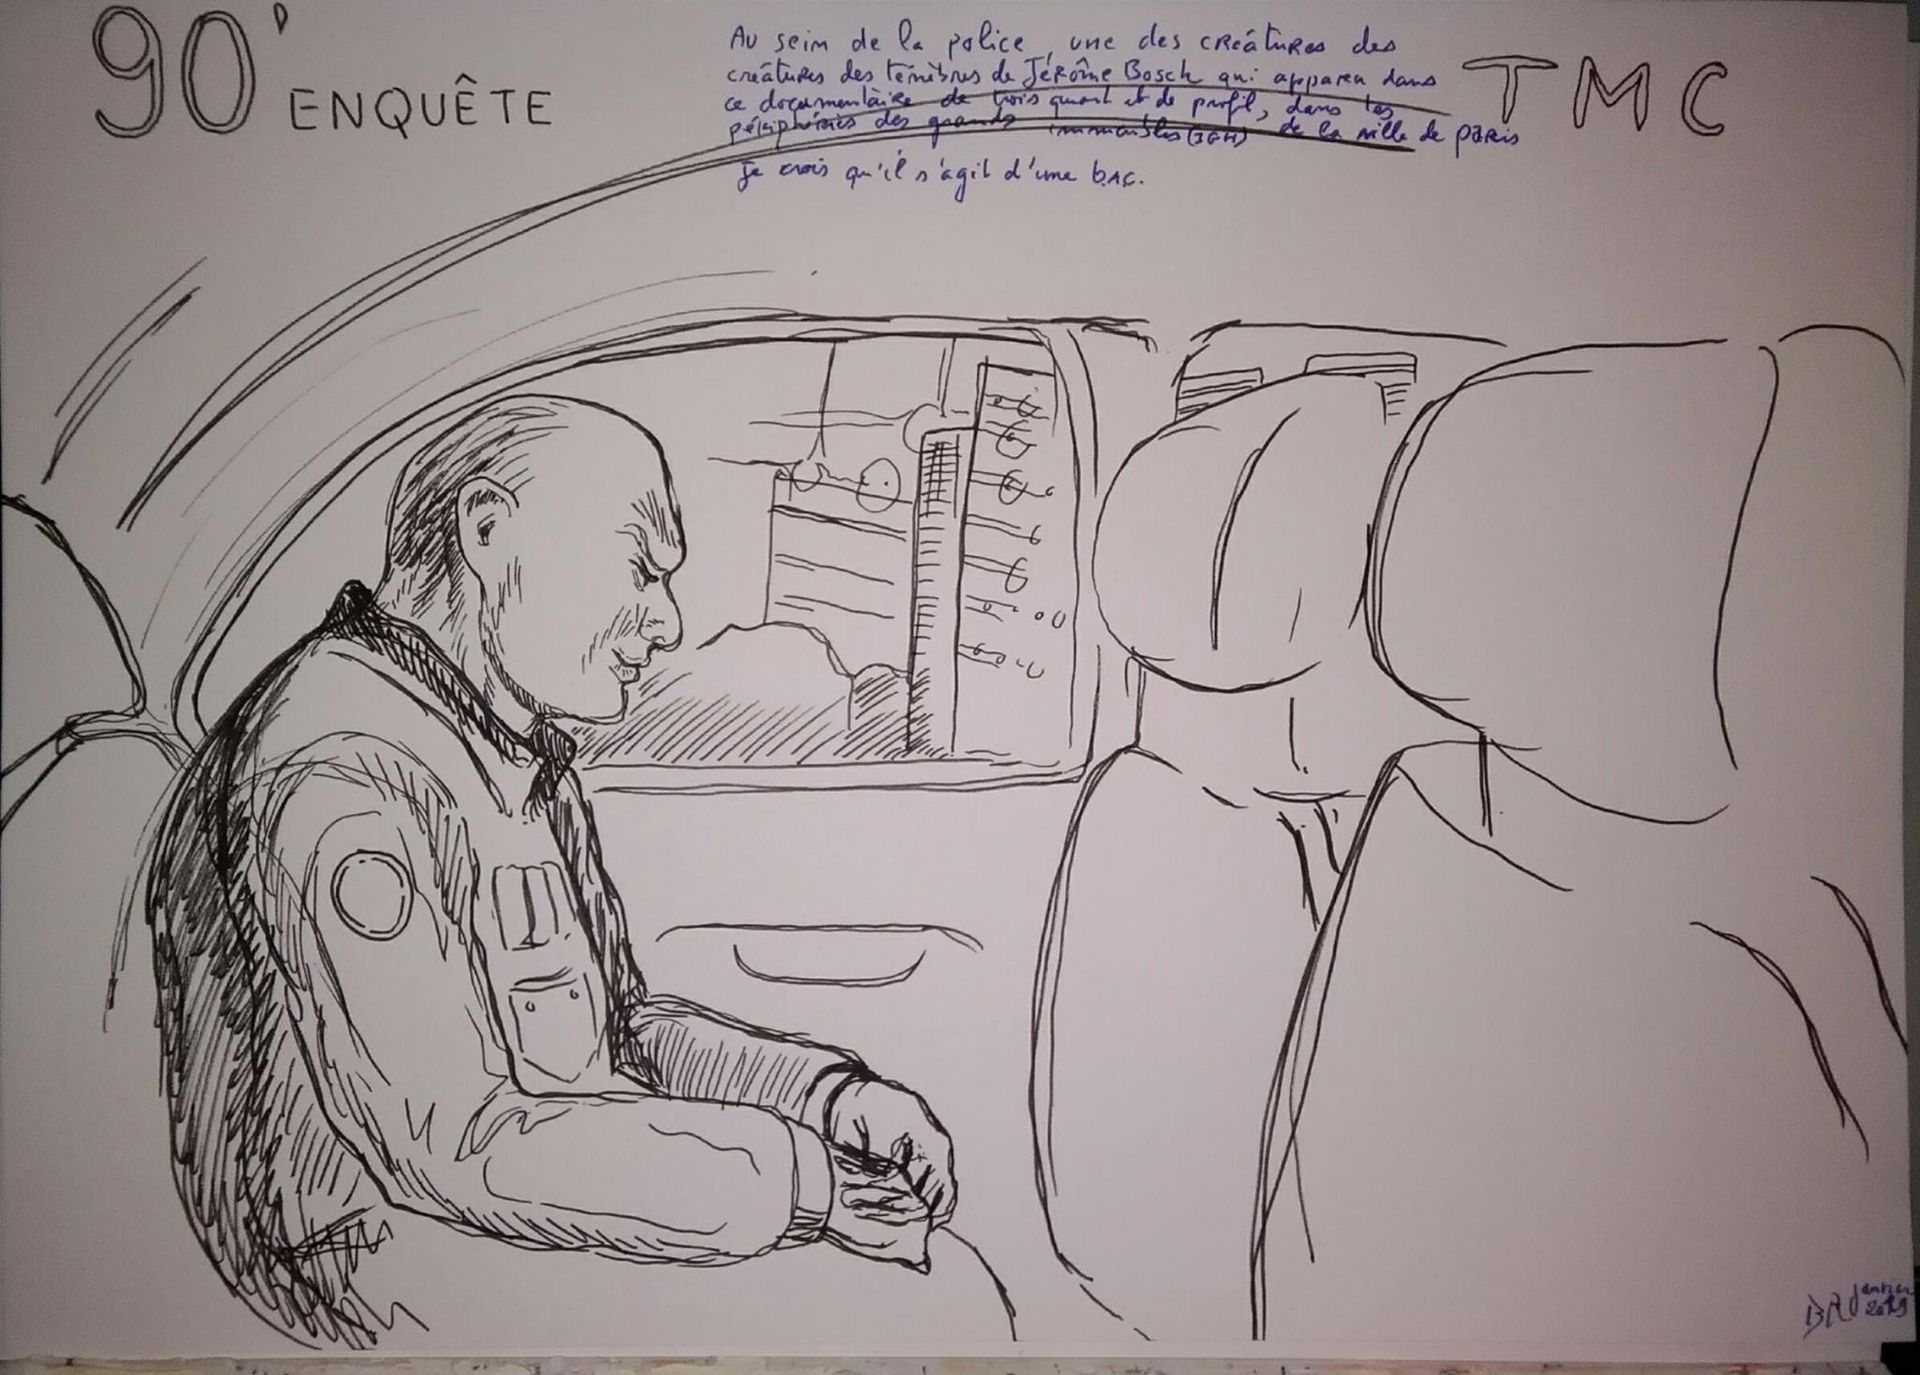 90' ENQUÊTE
TMC
Au sein de la police, une des créatures des
créatures des ténèbres de Jérôme Bosch qui apparaît dans
ce documentaire de trois quart et de profil, dans les
périphéries des grands immeubles (IGH) de la ville de paris
Je crois qu'il s'agit d'une bac.
Janvier
2019